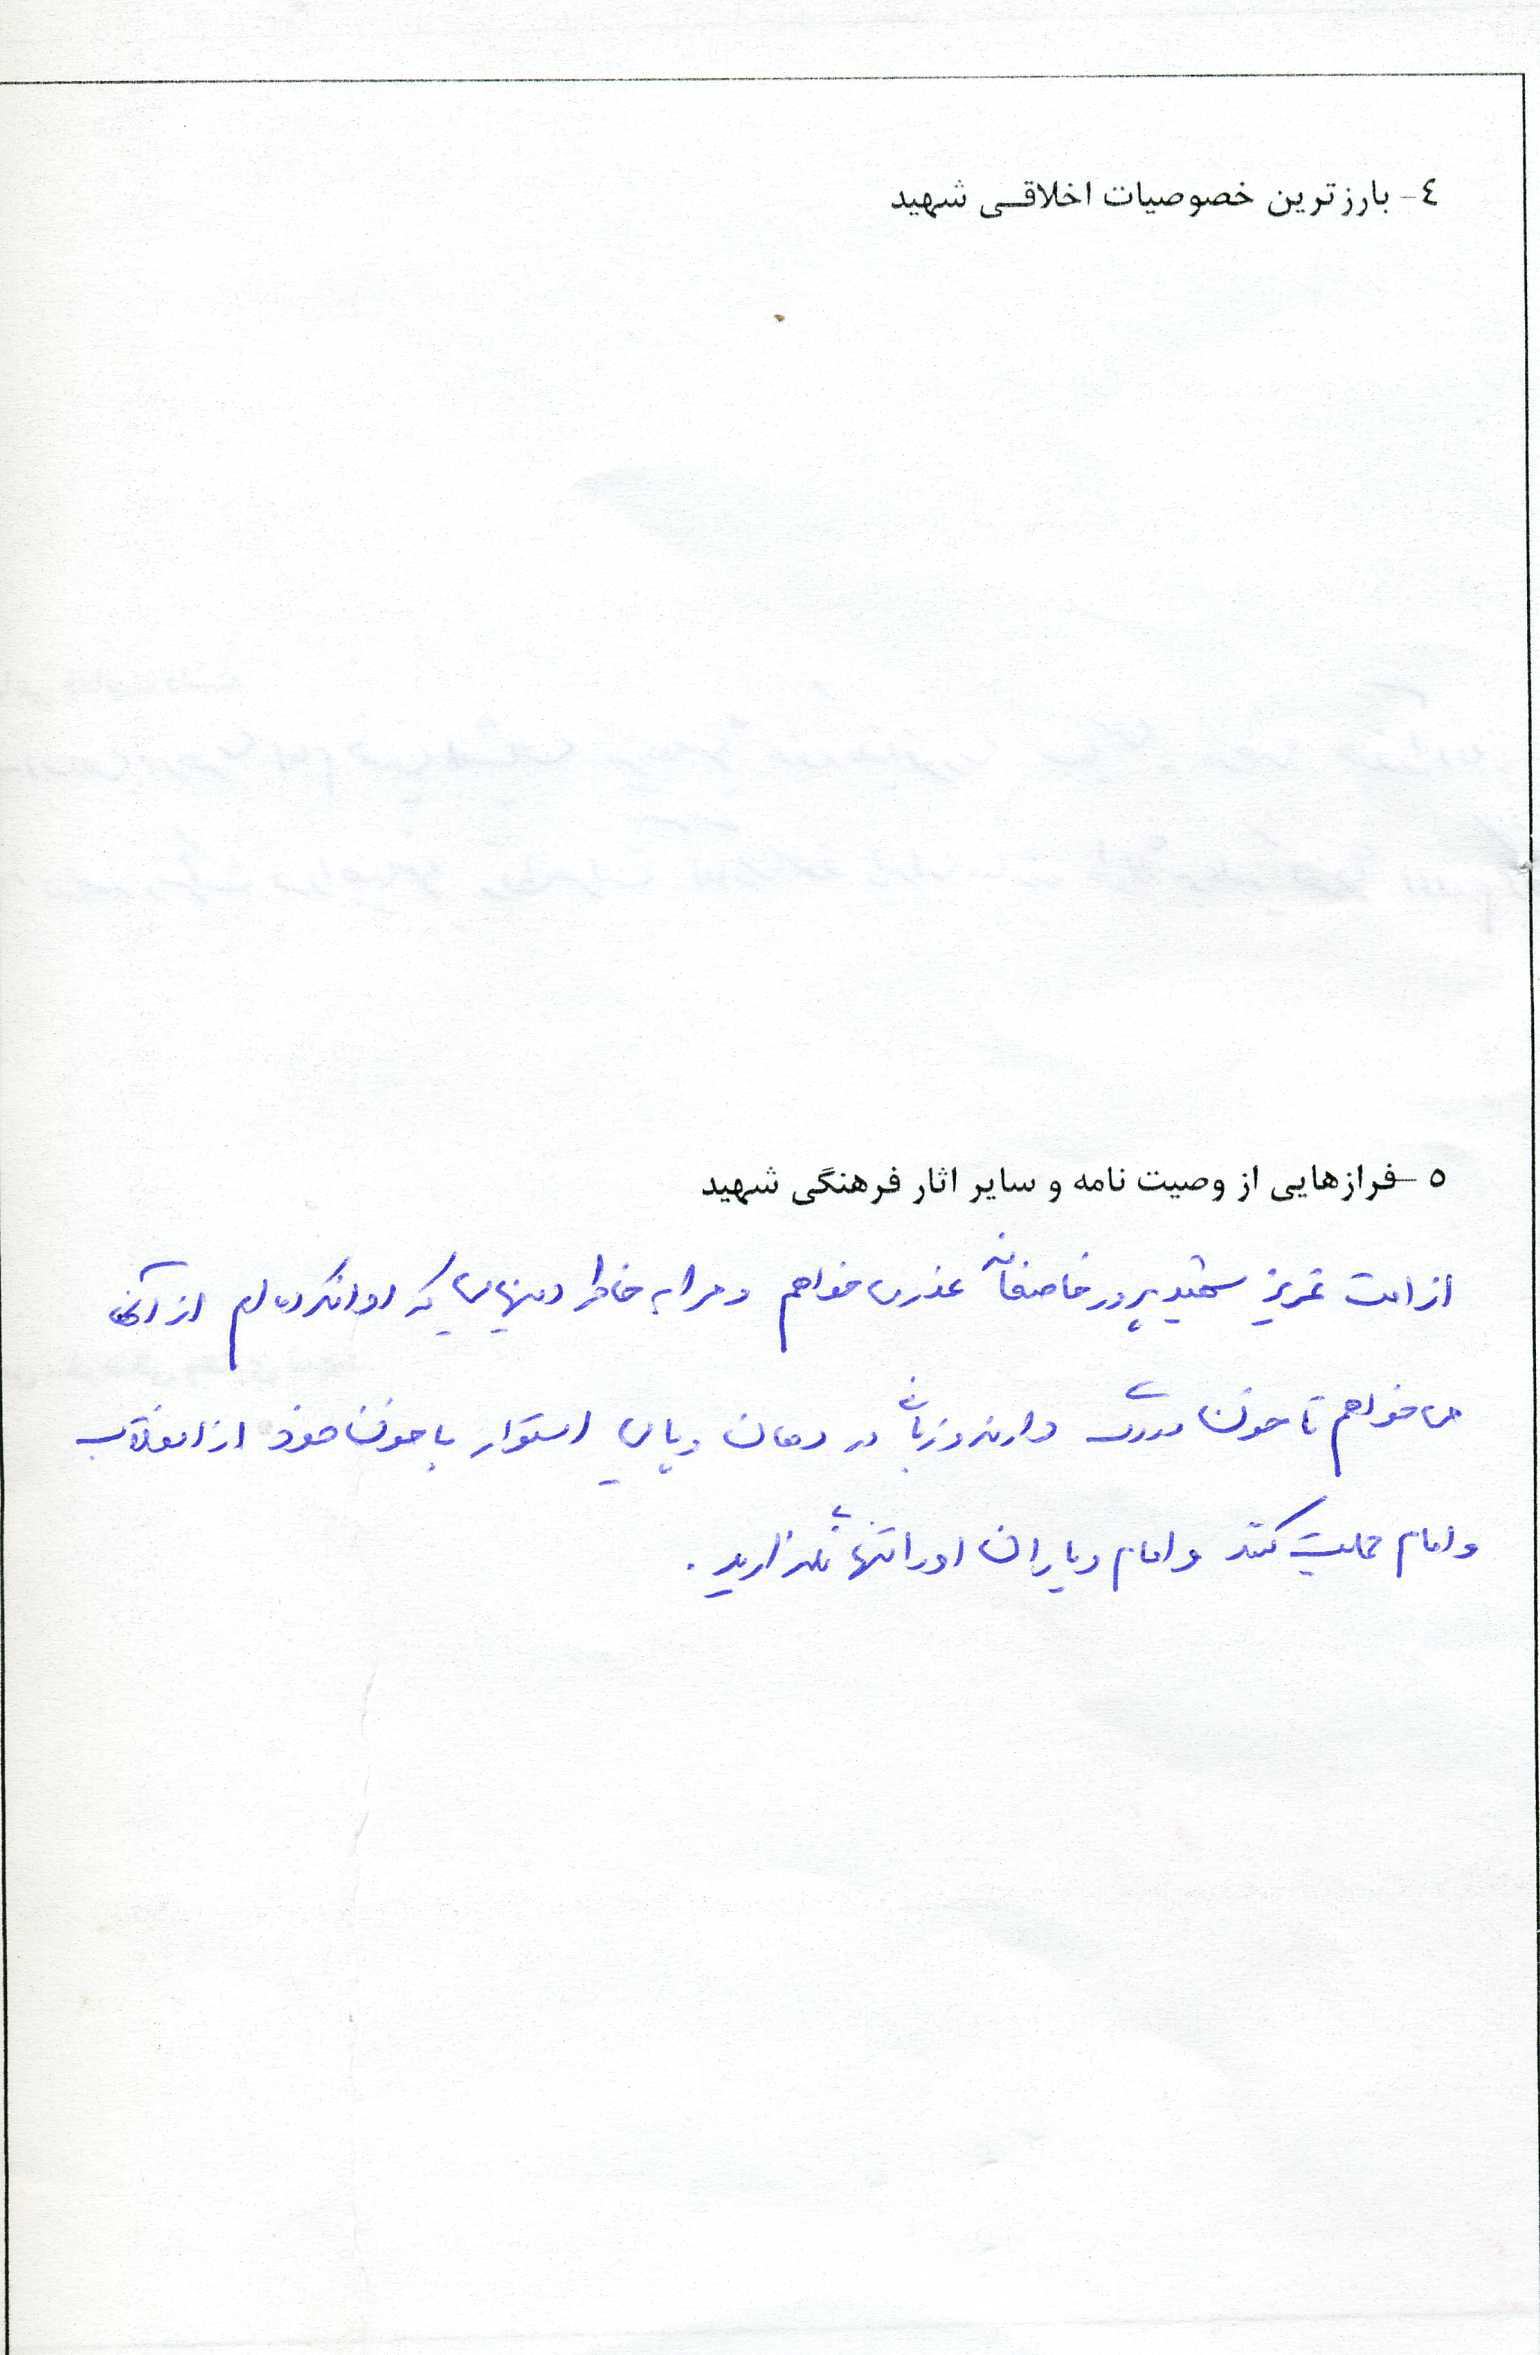 ٤- بارزترین خصوصیات اخلاقی شهید
٥-فرازهایی از وصیت نامه و سایر اثار فرهنگی شهید
از امت عزیز شهید پرور خاضعانه عذر می خواهم و مرا به خاطر دینهایی که ادا نکرده ام از آنها
می خواهم تا خون در رگ دارند و زبان در دهان و پایی استوار با خون خود از انقلاب
و امام حمایت کنند و امام و یاران او را تنها نگذارید .